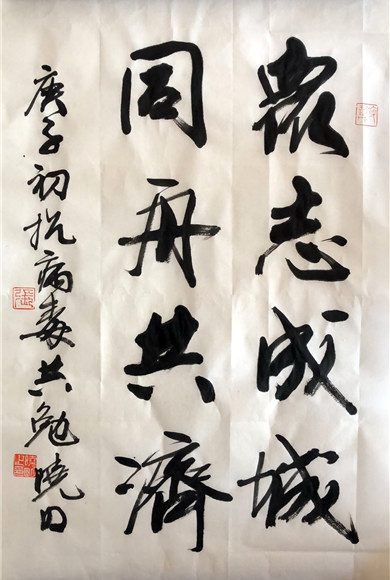 衆志成城
同舟共濟
庚子初抗病毒共勉曉日